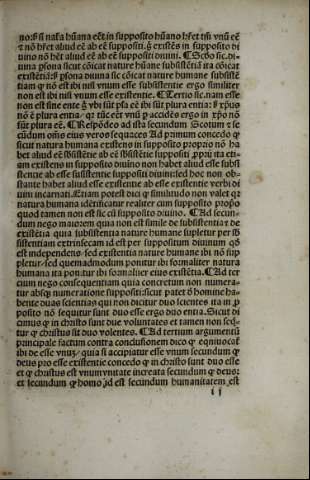 no: ꝙ si natura hũana eēt in supposito hũano hr̃et tm̃ vnũ eē
⁊ nõ hr̃et aliud eē ab eē suppositi. ḡ existẽs in supposito di
uino nõ hẽt aliud eē ab eē suppositi diuini. ¶ Scd̃o sic. di⸗
uina p̃sona sicut cõicat nature hũane subsistẽtiã ita cõicat
existẽtiã: ꝙ p̃sona diuina sic cõicat nature humane subsistẽ
tiam ꝙ nõ est ibi nisi vnum esse subsistentie ergo similiter
non est ibi nisi vnum esse existentie. ¶ Tertio sic. nam esse
non est sine ente ꝙ vbi sũt p̃sa eē ibi sũt plura entia: ꝙ xp̃us
nõ ē plura entia/ qꝛ tũc eēt vnũ p accidẽs ergo in xp̃o nõ
sũt plura eē. ¶ Rñdeo ad ista secundum Scotum ⁊ se
cũdum oĩnis eius veros sequaces Ad primum concedo ꝙ
sicut natura humana existens in supposito proprio nõ ha
bet aliud eē sb̃sistẽtie ab eē sb̃sistẽtie suppositi ꝓprii ita eti⸗
am existens in supposito diuino non habet aliud esse subsi
stentie ab esse subsistentie suppositi diuini: sed hoc non ob⸗
stante habet aliud esse existentie ab esse existentie verbi di
uini incarnati. Etiam potest dici ꝙ similitudo non valet qꝛ
natura humana idẽtificatur realiter cum supposito prop̃o
quod tamen non est sic cũ supposito diuino. ¶ Ad secun⸗
dum nego maiorem quia non est simile de subsistentia ⁊ de
existẽtia quia subsistentia nature humane supletur per sb̃
sistentiam extrinsecam id est per suppositum diuinum qd̃
est independens. sed existentia nature humane ibi nõ sup
pletur/ sed quemadmodum ponitur ibi formaliter natura
humana ita ponitur ibi formaliter eius existẽtia. ¶ Ad ter
cium nego consequentiam quia concretum non numera⸗
tur absqꝫ numeratione suppositi: sicut patet de homine ha⸗
bente duas scientias qui non dicitur duo scientes ita in p̃
posito nõ sequitur sunt duo esse ergo duo entia. Sicut di
cimus ꝙ in christo sunt due voluntates et tamen non seq̃⸗
tur ꝙ christus sit duo volentes. ¶ Ad tertium argumentũ
principale factum contra conclusionem dico ꝙ equiuocat̃
ibi de esse vnuꝫ/ quia si accipiatur esse vnum secundum ꝙ
deus pro esse existentie concedo ꝙ in christo sunt duo esse
et ꝙ christus est vnum vnitate increata secundum ꝙ deus:
et secundum ꝙ homo id est secundum humanitatem est
i j